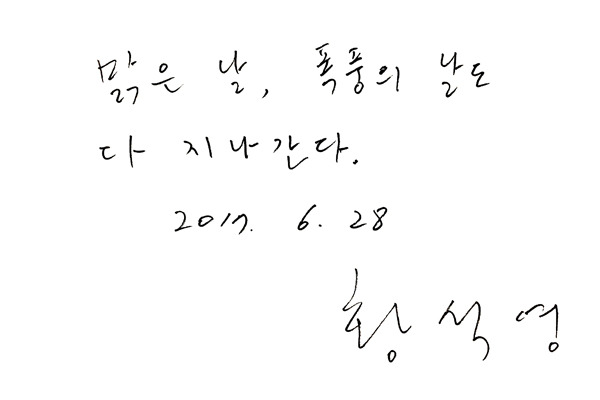 맑은 날, 폭풍의 날도
다 지나간다.
2017. 6. 28
황석영